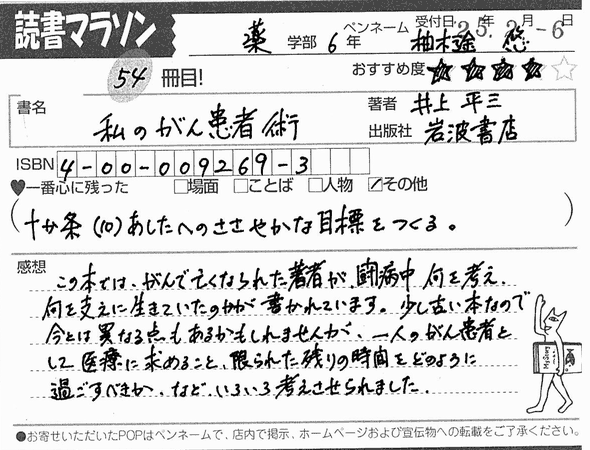 読書マラソン
薬 学部 6年 ペンネーム 柚木 悠 受付日: 25年 2月-6日
54冊目! おすすめ度 ★★★★☆
書名 私のがん患者術 著者 井上 平三
出版社 岩波書店
ISBN 4-00-009269-3
♥一番心に残った □場面 □ことば □人物 ☑その他
(十か条 (10) あしたへのささやかな目標をつくる。)
感想
この本では、がんで亡くなられた著者が、闘病中 何を考え、
何を支えに生きていたのかが書かれています。少し古い本なので
今とは異なる点もあるかもしれませんが、一人のがん患者と
して医療に求めること、限られた残りの時間をどのように
過ごすべきか、など、いろいろ考えさせられました。
●お寄せいただいたPOPはペンネームで、店内で掲示、ホームページおよび宣伝物への転載をご了承ください。